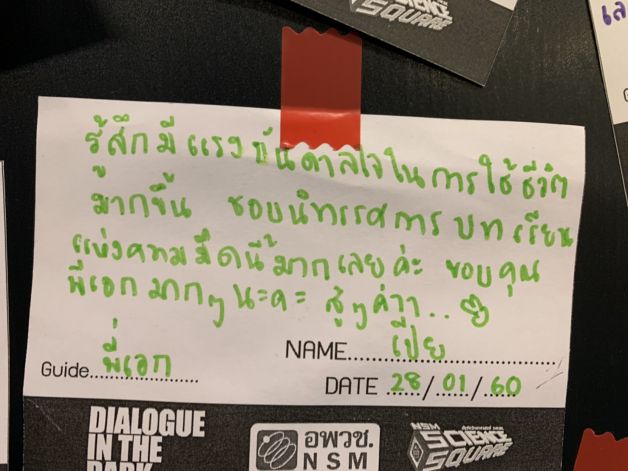 SCIENCE
SQUARE
รู้สึกมีแรงบันดาลใจในการใช้ชีวิต
มากขึ้น ชอบนิทรรศการ บทเรียน
แห่งความมืดนี้มากเลยค่ะ ขอบคุณ
พี่เอกมากๆ นะคะ สู้ๆค่าา..
NAME เปีย
Guide พี่เอก
DATE 28/01/60
DIALOGUE
IN THE
DARK
อพวช.
NSM
NSM
SCIENCE
SQUARE